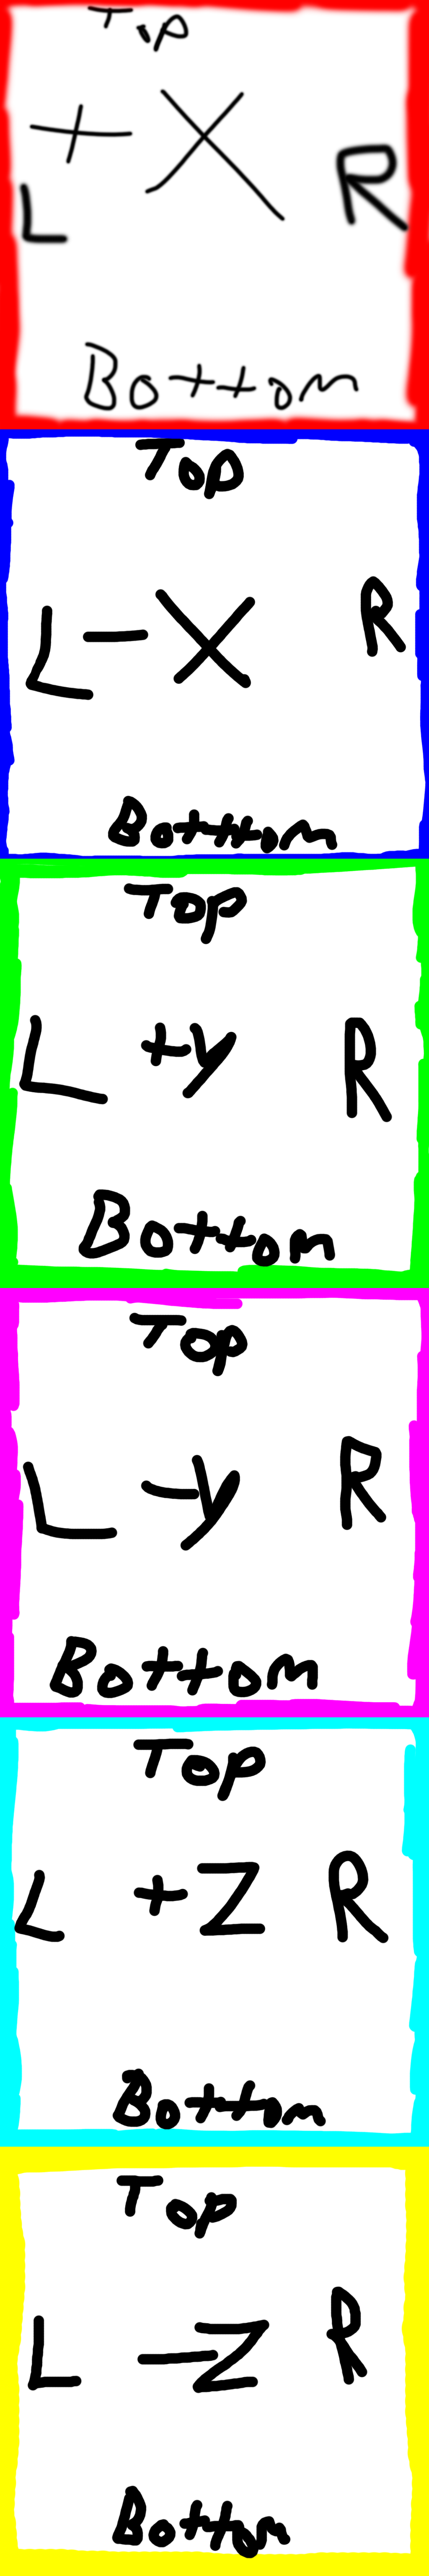 Top
+ X
L R
Bottom
Top
L - X R
Botttom
Top
L +y R
Bottom
Top
L -y R
Bottom
Top
L +Z R
Bottom
Top
L -Z R
Bottom